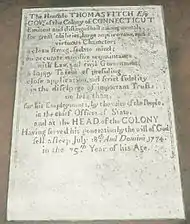 The Honble. THOMAS FITCH Esqr.
GOVr. of the Colony of CONNECTICUT
Eminent and distinguished among mortals
for great abilities, large acquirements, and
virtuous Character;
a clear, strong, sedate mind;
an accurate extensive acquaintance
with Law, and civil Government;
a happy Talent of presiding;
close application, and strict fidelity
in the discharge of important Truths
no less than
for his Employments, by the voice of the People,
in the chief Offices of State,
and at the HEAD of the COLONY
Having served his generation by the will of God,
fell asleep July 18th Anno Domini 1774
in the 75th Year of his Age.